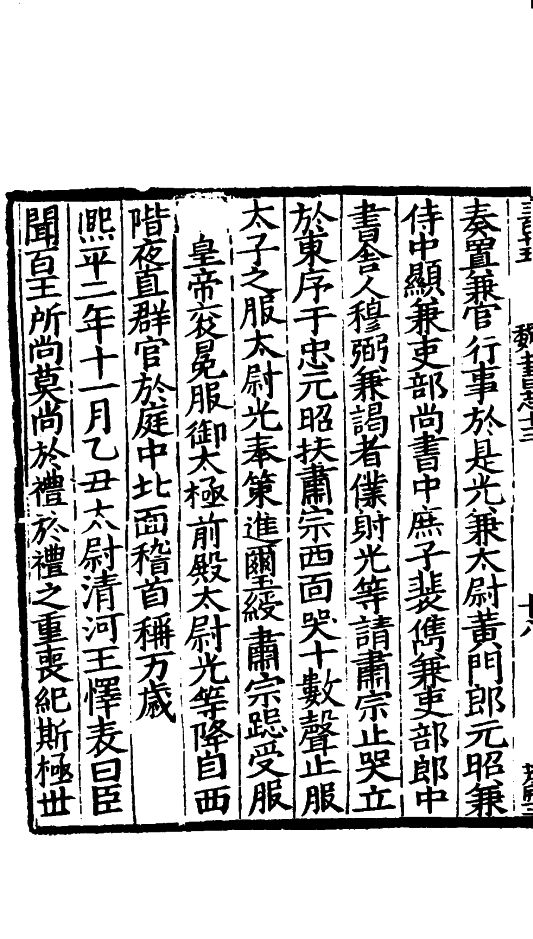 魏書志十三
十八
奏置兼官行事於是光兼太尉黃門郎元昭兼
侍中顯兼吏部尚書中庶子裴儁兼吏部郎中
書舍人穆弼兼謁者僕射光等請肅宗止哭立
於東序于忠元昭扶肅宗西面哭十數聲止服
太子之服太尉光奉策進璽綬肅宗跽受服
皇帝衮冕服御太極前殿太尉光等降自西
階夜直群官於庭中北面稽首稱万歲
熙平二年十一月乙丑太尉清河王懌表曰臣
聞百王所尚莫尚於禮於禮之重喪紀斯極世